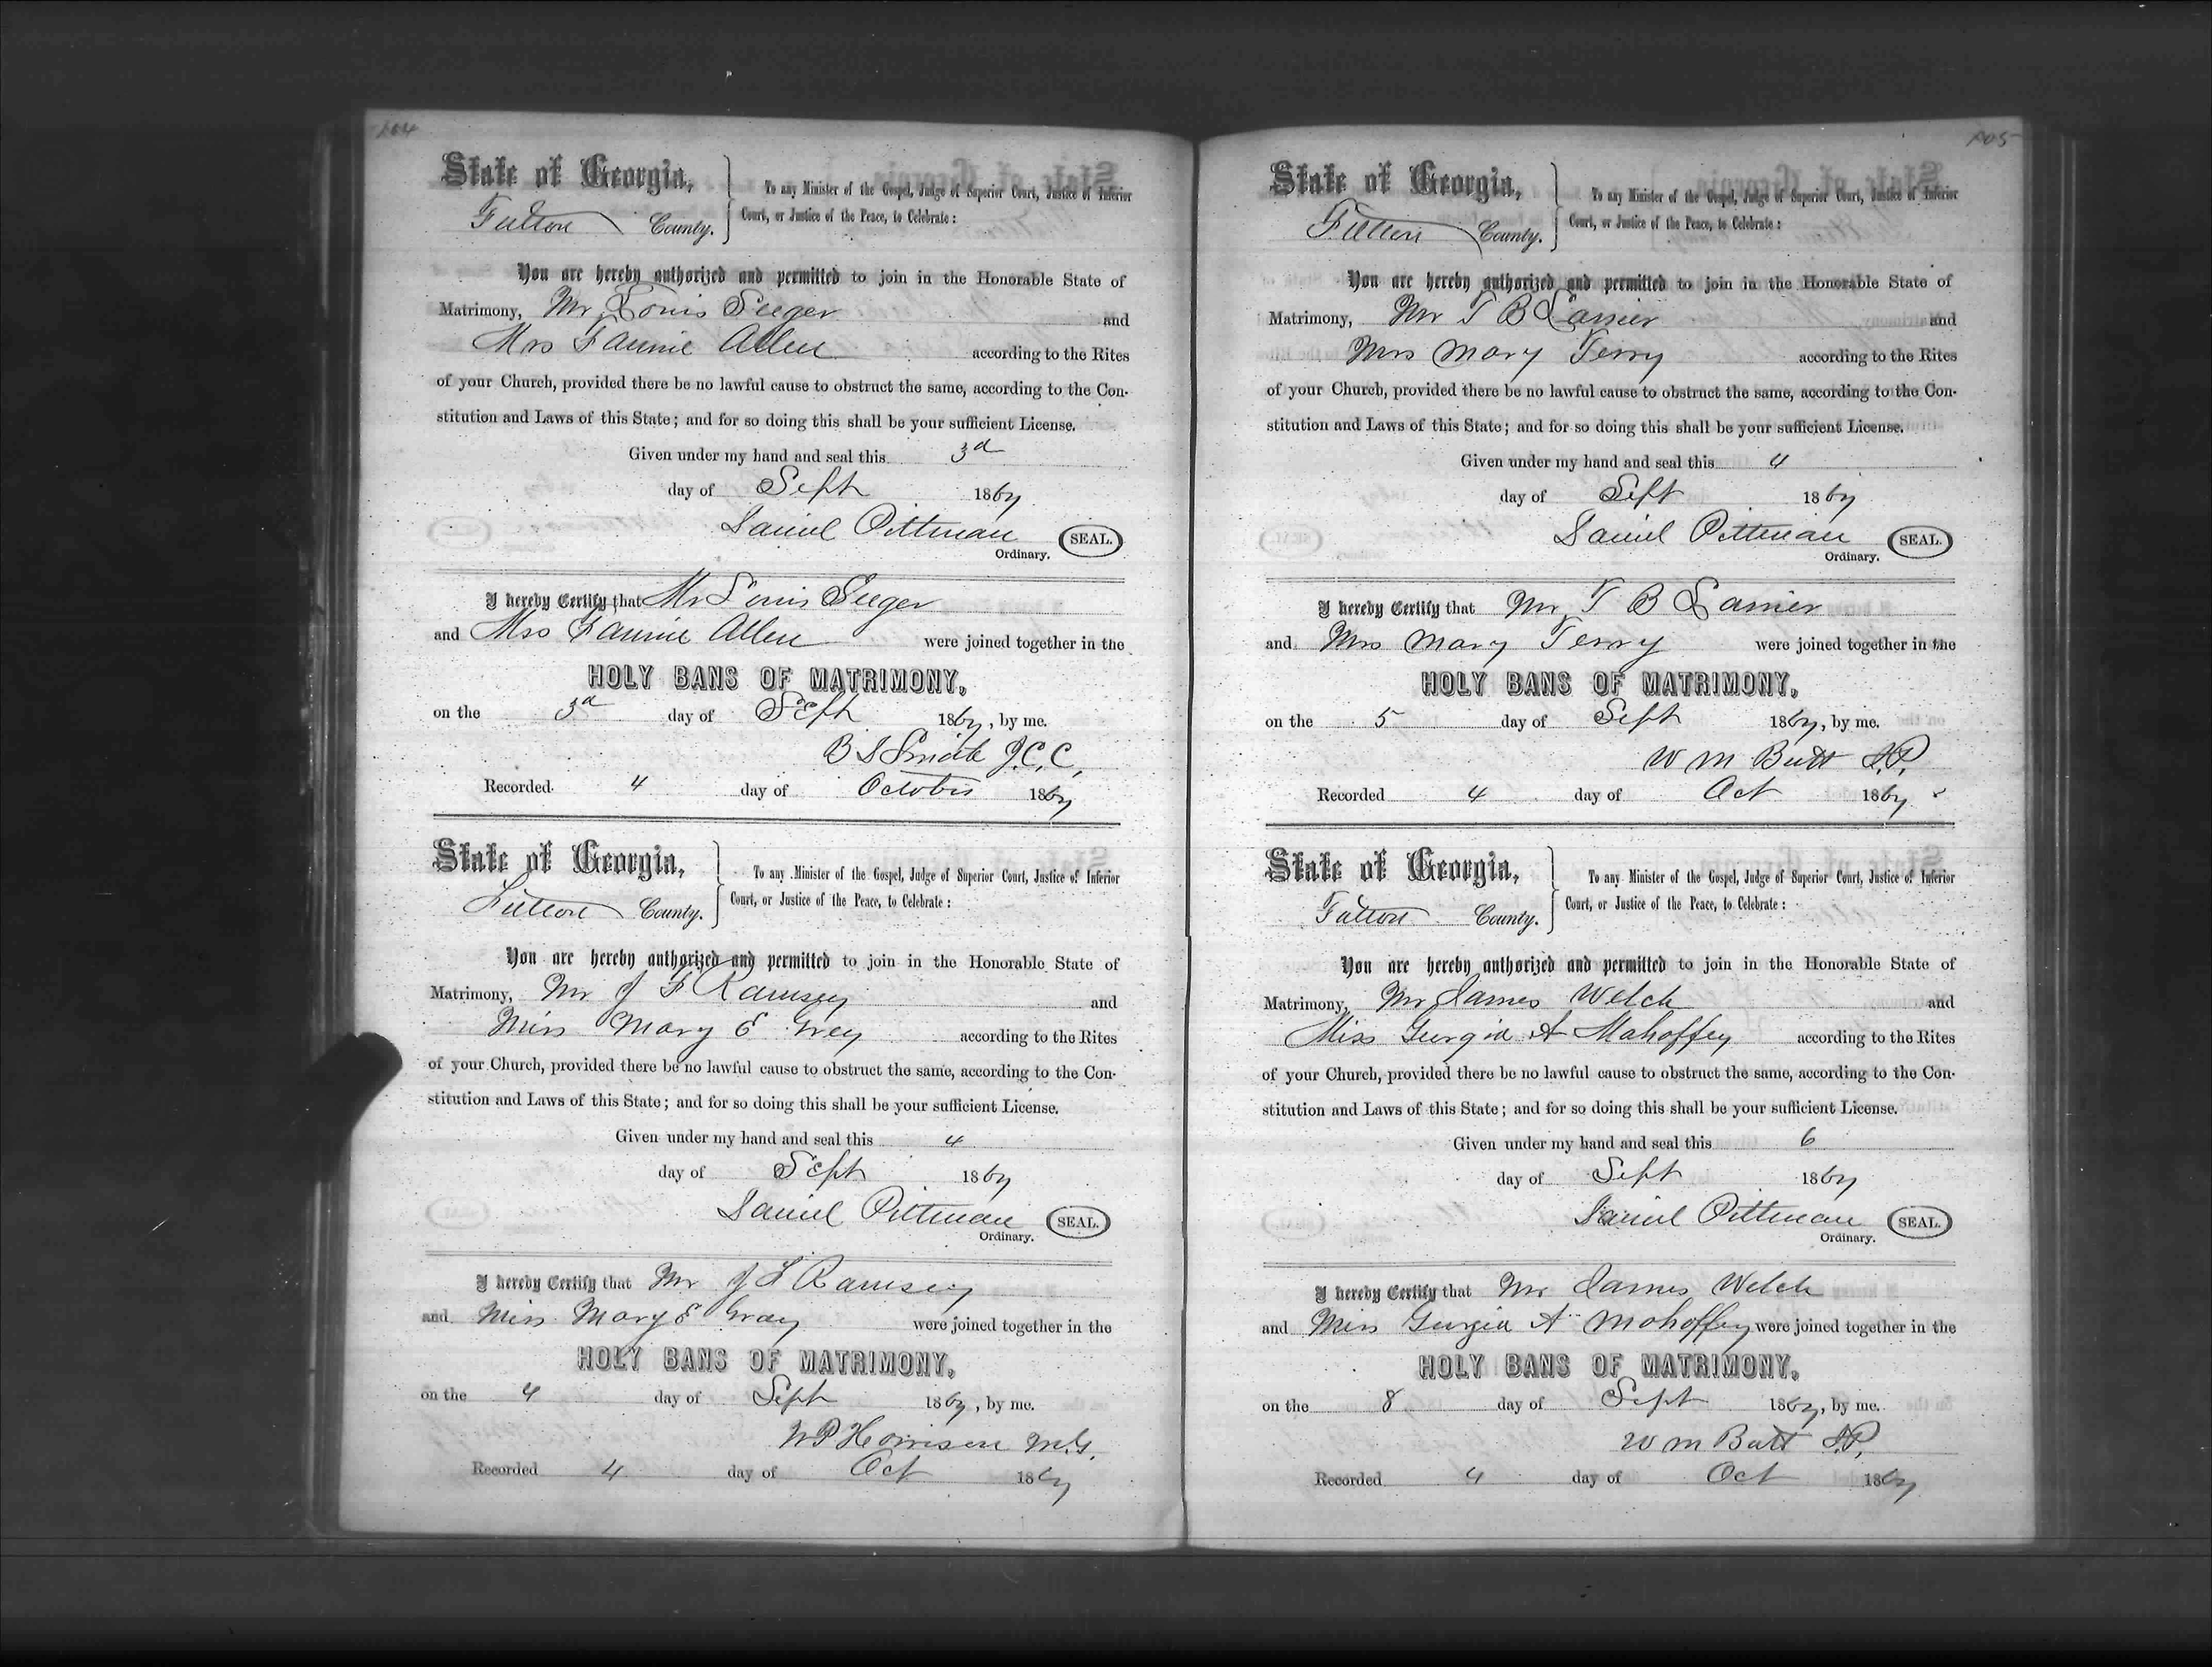 104
State of Georgia,
Fulton County.
To any Minister of the Gospel, Judge of Superior Court, Justice of Inferior
Court, or Justice of the Peace, to Celebrate:
You are hereby authorized and permitted to join in the Honorable State of
Matrimony, Mr Louis Seeger and
Mrs Fannie Allen according to the Rites
of your Church, provided there be no lawful cause to obstruct the same, according to the Con-
stitution and Laws of this State; and for so doing this shall be your sufficient License.
Given under my hand and seal this 3d
day of Sept 1867
Daniel Pittman SEAL.
Ordinary.
I hereby Certify that Mr Louis Seeger
and Mrs Fannie Allen were joined together in the
HOLY BANS OF MATRIMONY,
on the 3d day of Sept 1867, by me.
B D Smith J.C.C.
Recorded 4 day of October 1867
State of Georgia,
Fulton County.
To any Minister of the Gospel, Judge of Superior Court, Justice of Inferior
Court, or Justice of the Peace, to Celebrate:
You are hereby authorized and permitted to join in the Honorable State of
Matrimony, Mr J F Ramsey and
Miss Mary E Grey according to the Rites
of your Church, provided there be no lawful cause to obstruct the same, according to the Con-
stitution and Laws of this State; and for so doing this shall be your sufficient License.
Given under my hand and seal this 4
day of Sept 1867
Daniel Pittman SEAL.
Ordinary.
I hereby Certify that Mr J F Ramsey
and Miss Mary E Gray were joined together in the
HOLY BANS OF MATRIMONY,
on the 4 day of Sept 1867, by me.
W P Harrison M.G.
Recorded 4 day of Oct 1867
105
State of Georgia,
Fulton County.
To any Minister of the Gospel, Judge of Superior Court, Justice of Inferior
Court, or Justice of the Peace, to Celebrate:
You are hereby authorized and permitted to join in the Honorable State of
Matrimony, Mr T B Lanier and
Mrs Mary Terry according to the Rites
of your Church, provided there be no lawful cause to obstruct the same, according to the Con-
stitution and Laws of this State; and for so doing this shall be your sufficient License.
Given under my hand and seal this 4
day of Sept 1867
Daniel Pittman SEAL.
Ordinary.
I hereby Certify that Mr T B Lanier
and Mrs Mary Terry were joined together in the
HOLY BANS OF MATRIMONY,
on the 5 day of Sept 1867, by me.
W M Butt J.P.
Recorded 4 day of Oct 1867
State of Georgia,
Fulton County.
To any Minister of the Gospel, Judge of Superior Court, Justice of Inferior
Court, or Justice of the Peace, to Celebrate:
You are hereby authorized and permitted to join in the Honorable State of
Matrimony, Mr James Welch and
Miss Georgia A Mahoffey according to the Rites
of your Church, provided there be no lawful cause to obstruct the same, according to the Con-
stitution and Laws of this State; and for so doing this shall be your sufficient License.
Given under my hand and seal this 6
day of Sept 1867
Daniel Pittman SEAL.
Ordinary.
I hereby Certify that Mr James Welch
and Miss Georgia A Mohoffey were joined together in the
HOLY BANS OF MATRIMONY,
on the 8 day of Sept 1867, by me.
W M Butt J.P.
Recorded 4 day of Oct 1867